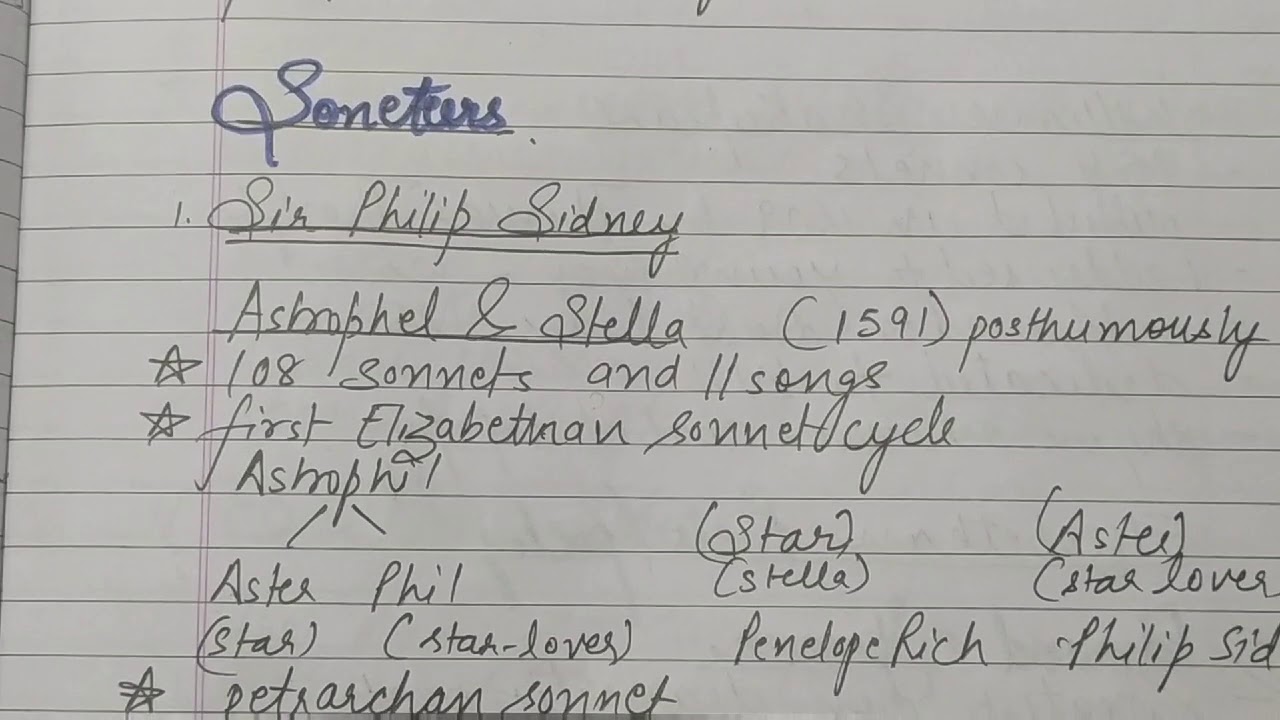 Soneteers.
1. Sir Philip Sidney
Astrophel & Stella (1591) posthumously
☆ 108 sonnets and 11 songs
☆ first Elizabethan sonnet/cycle
Astrophil
(Star) (Aster)
Aster Phil (Stella) (star lover
(star) (star-lover) Penelope Rich Philip Sid
☆ petrarchan sonnet